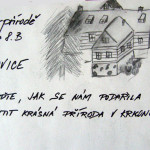 přírodě
8.B
VICE
JAK SE NÁM PODAŘILA
TIT KRÁSNÁ PŘÍRODA V KRKONO